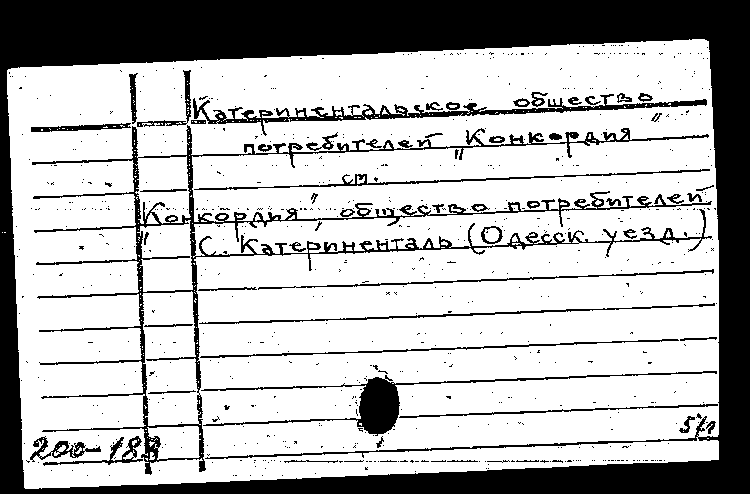 Катериненгальское общество
потребителей „Конкордия“
см.
„Конкордия“, общество потребителей
С. Катериненталь (Одесск. уезд.)
200-188